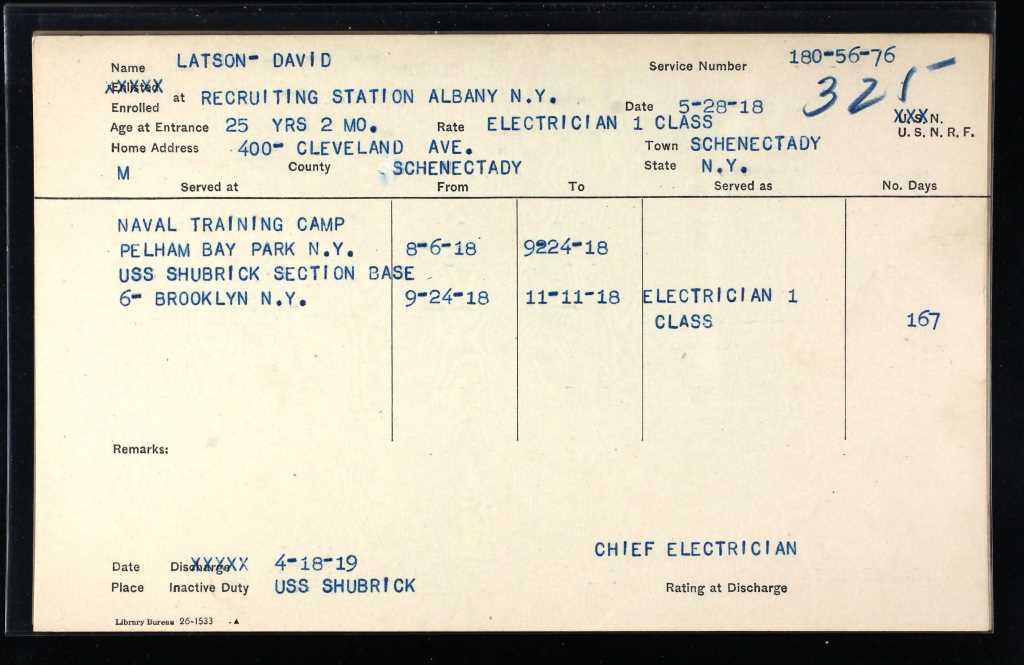 Name LATSON- DAVID Service Number 180-56-76
Enlisted XXXXX
Enrolled at RECRUITING STATION ALBANY N.Y. Date 5-28-18 325 U.S.N. XXX
Age at Entrance 25 YRS 2 MO. Rate ELECTRICIAN 1 CLASS U. S. N. R. F.
Home Address 400- CLEVELAND AVE. Town SCHENECTADY
M County SCHENECTADY State N.Y.
Served at From To Served as No. Days
NAVAL TRAINING CAMP
PELHAM BAY PARK N.Y. 8-6-18 9224-18
USS SHUBRICK SECTION BASE
6- BROOKLYN N.Y. 9-24-18 11-11-18 ELECTRICIAN 1
CLASS 167
Remarks:
CHIEF ELECTRICIAN
Date Discharge XXXXX 4-18-19
Place Inactive Duty USS SHUBRICK Rating at Discharge
Library Bureau 26-1533